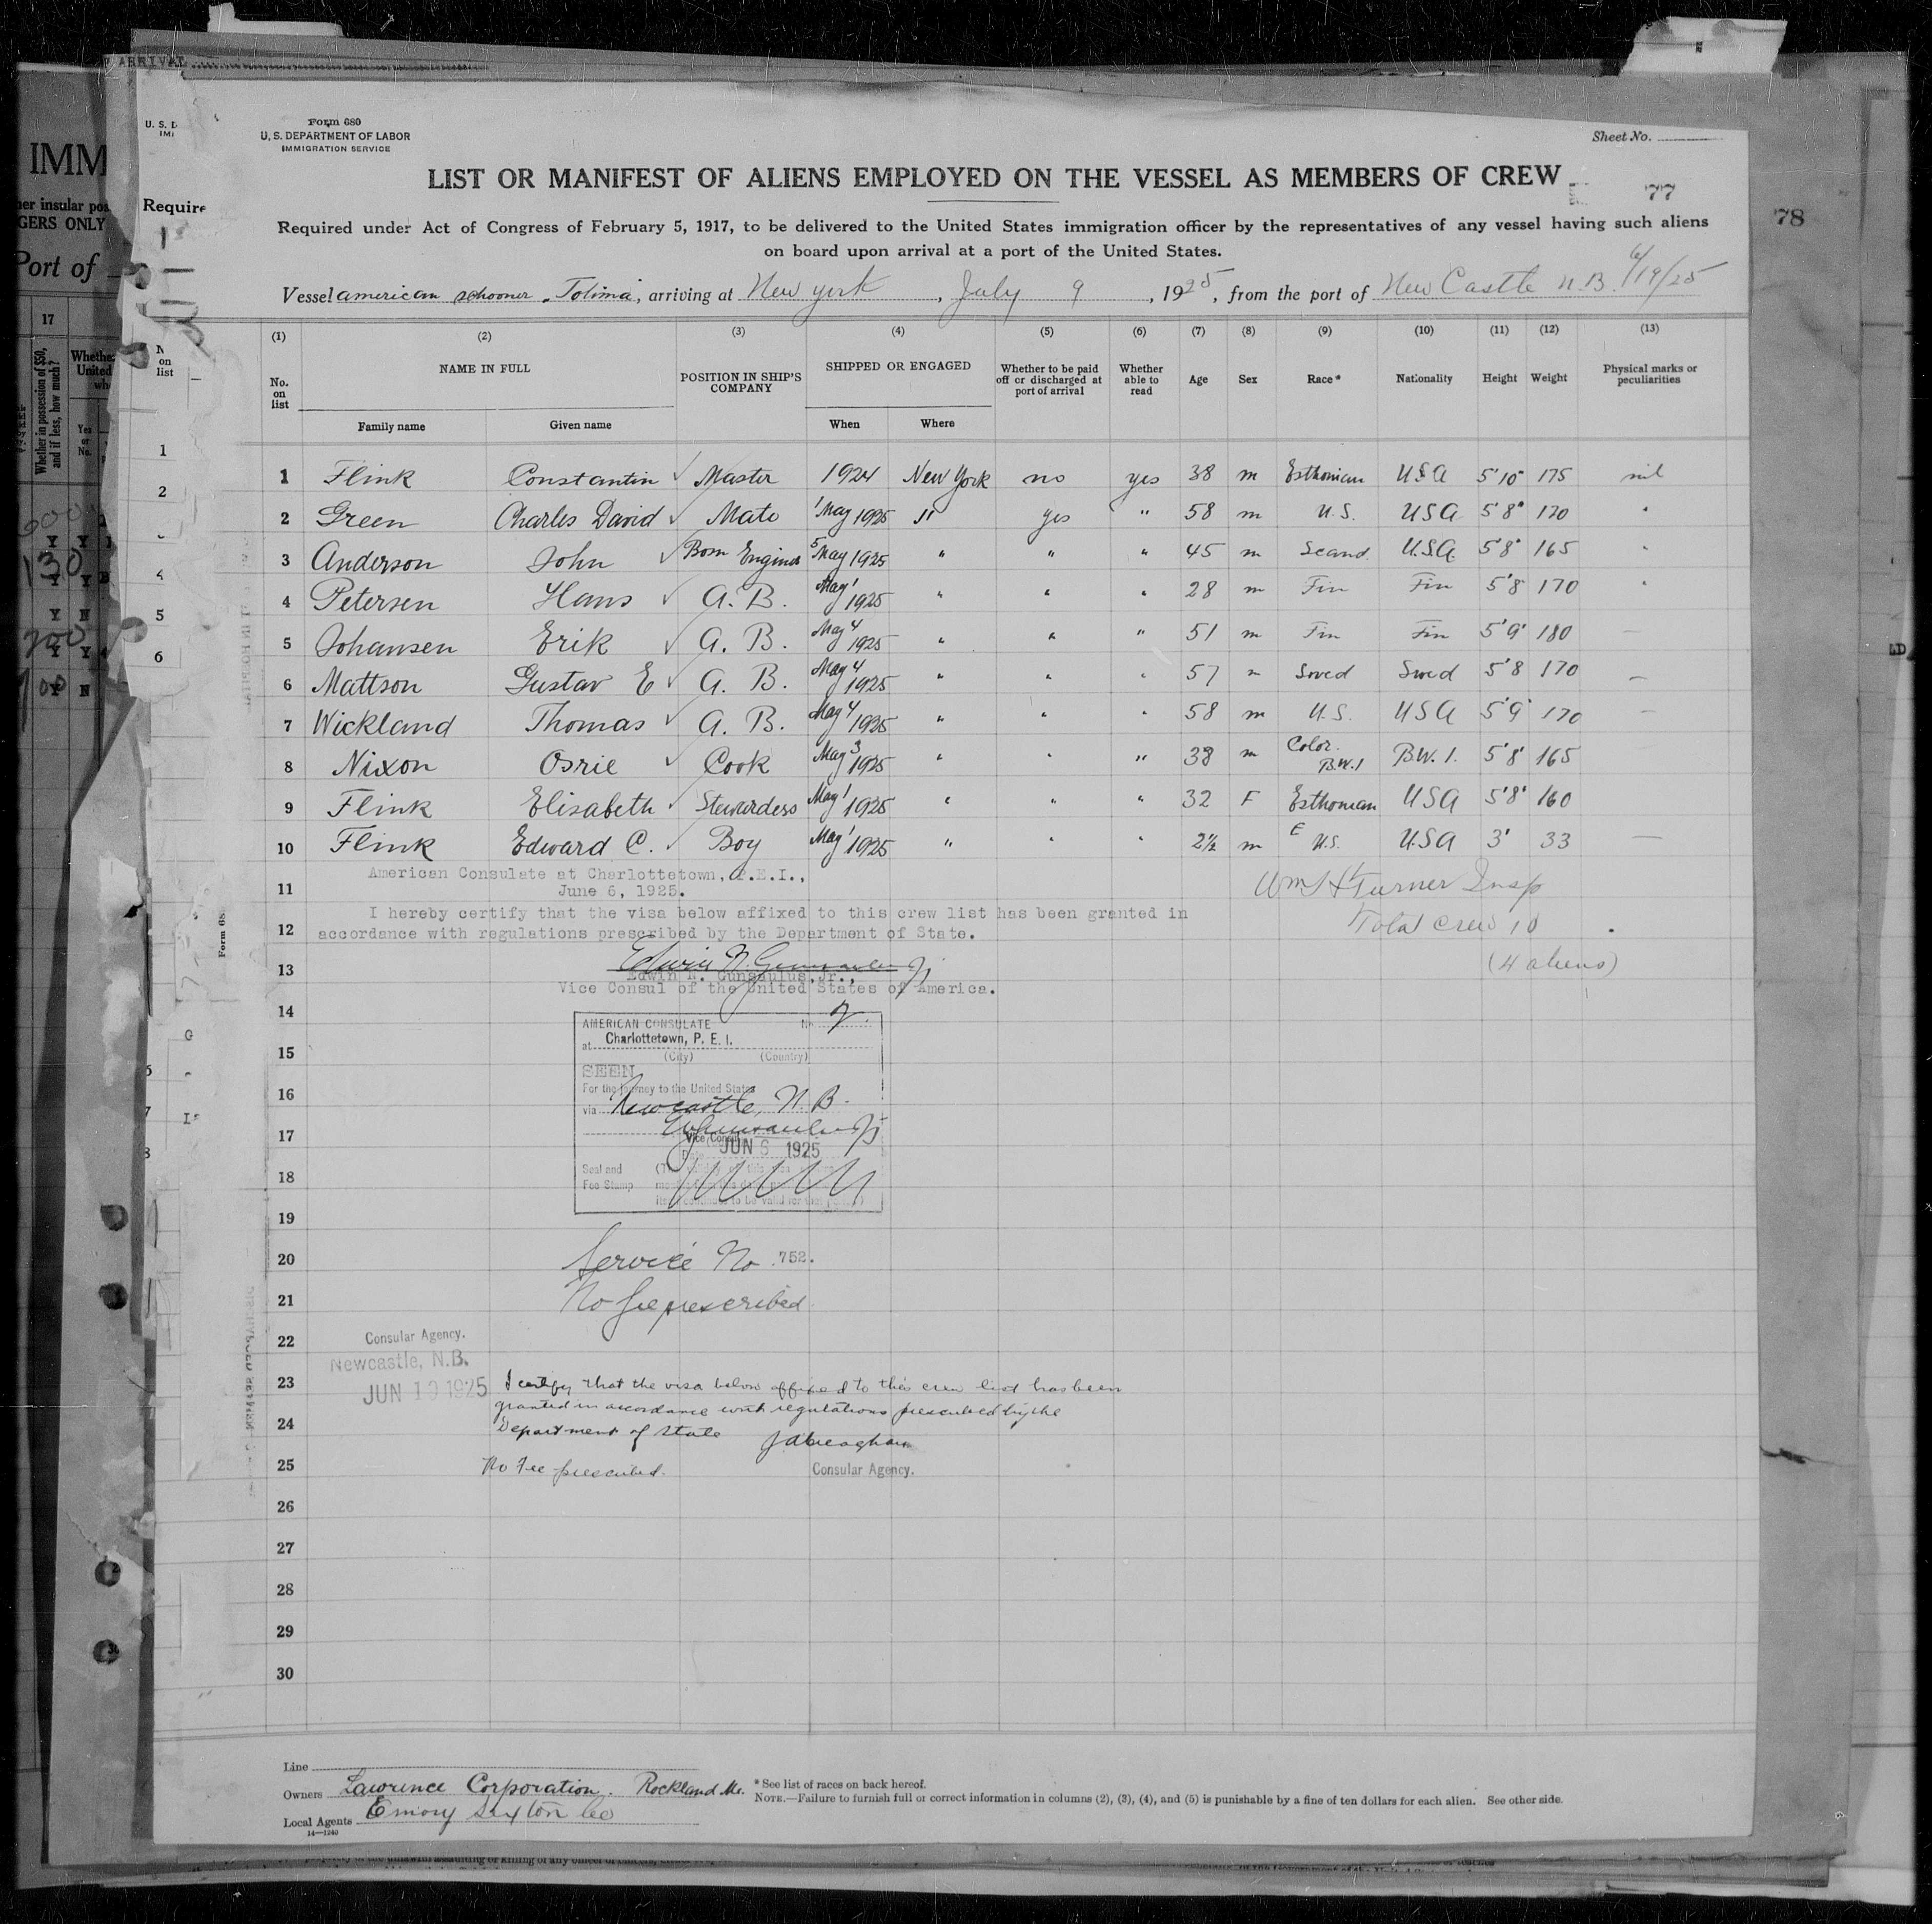 ARRIVAL
IMM
her insular pos
GERS ONLY
Port of
17
Whether in possession of $50, and if less, how much?
Whether
United
Yes
or
No.
U. S. D
IMI
Require
on
list
1
2
4
5
6
Form 680
U. S. DEPARTMENT OF LABOR
IMMIGRATION SERVICE
Sheet No.
LIST OR MANIFEST OF ALIENS EMPLOYED ON THE VESSEL AS MEMBERS OF CREW
77
78
Required under Act of Congress of February 5, 1917, to be delivered to the United States immigration officer by the representatives of any vessel having such aliens
on board upon arrival at a port of the United States.
Vessel american schooner "Tolima", arriving at New york, July 9, 1925, from the port of New Castle N.B. 6/19/25
(1) (2) (3) (4) (5) (6) (7) (8) (9) (10) (11) (12) (13)
No. on list NAME IN FULL POSITION IN SHIP'S COMPANY SHIPPED OR ENGAGED Whether to be paid off or discharged at port of arrival Whether able to read Age Sex Race* Nationality Height Weight Physical marks or peculiarities
Family name Given name When Where
1 Flink Constantin ✓ Master 1924 New York no yes 38 m Esthonian USA 5'10" 175 nil
2 Green Charles David ✓ Mate 1 May 1925 " yes " 58 m U.S. USA 5'8" 170 "
3 Anderson John ✓ Bom Engineer 5 May 1925 " " " 45 m Scand. U.S.A. 5'8" 165 "
4 Petersen Hans ✓ A. B. May 1 1925 " " " 28 m Fin Fin 5'8 170 "
5 Johansen Erik ✓ A. B. May 4 1925 " " " 51 m Fin Fin 5'9" 180 —
6 Mattson Gustav E ✓ A. B. May 4 1925 " " " 57 m Swed Swed 5'8 170 —
7 Wickland Thomas ✓ A. B. May 4 1925 " " " 58 m U.S. USA 5'9" 170 —
8 Nixon Osrie ✓ Cook May 3 1925 " " " 38 m Color. B.W.I B.W.I. 5'8" 165
9 Flink Elisabeth ✓ Stewardess May 1 1925 " " " 32 F Esthonian USA 5'8" 160
10 Flink Edward C. ✓ Boy May 1 1925 " " " 2½ m E U.S. USA 3' 33 —
American Consulate at Charlottetown, P.E.I.,
11 June 6, 1925.
Wm H Turner Insp
I hereby certify that the visa below affixed to this crew list has been granted in
12 accordance with regulations prescribed by the Department of State.
Total Crew 10
Edwin N. Gunsaulus Jr
13 Edwin N. Gunsaulus, Jr.,
(4 aliens)
Vice Consul of the United States of America.
14
AMERICAN CONSULATE No. 2
at Charlottetown, P. E. I.
15
(City) (Country)
SEEN
For the journey to the United States
16
via Newcastle, N. B.
17
Vice Consul
Date JUN 6 1925
18
Seal and
Fee Stamp
19
20 Service No. 752.
21 No fee prescribed
22 Consular Agency.
Newcastle, N.B.
23 JUN 19 1925 I certify that the visa below affixed to this crew list has been
granted in accordance with regulations prescribed by the
24 Department of State
25 No fee prescribed. Consular Agency.
26
27
28
29
30
Form 68
Line
Owners Lawrence Corporation. Rockland Me.
Local Agents Emory Sexton Co
14—1240
* See list of races on back hereof.
NOTE.—Failure to furnish full or correct information in columns (2), (3), (4), and (5) is punishable by a fine of ten dollars for each alien. See other side.